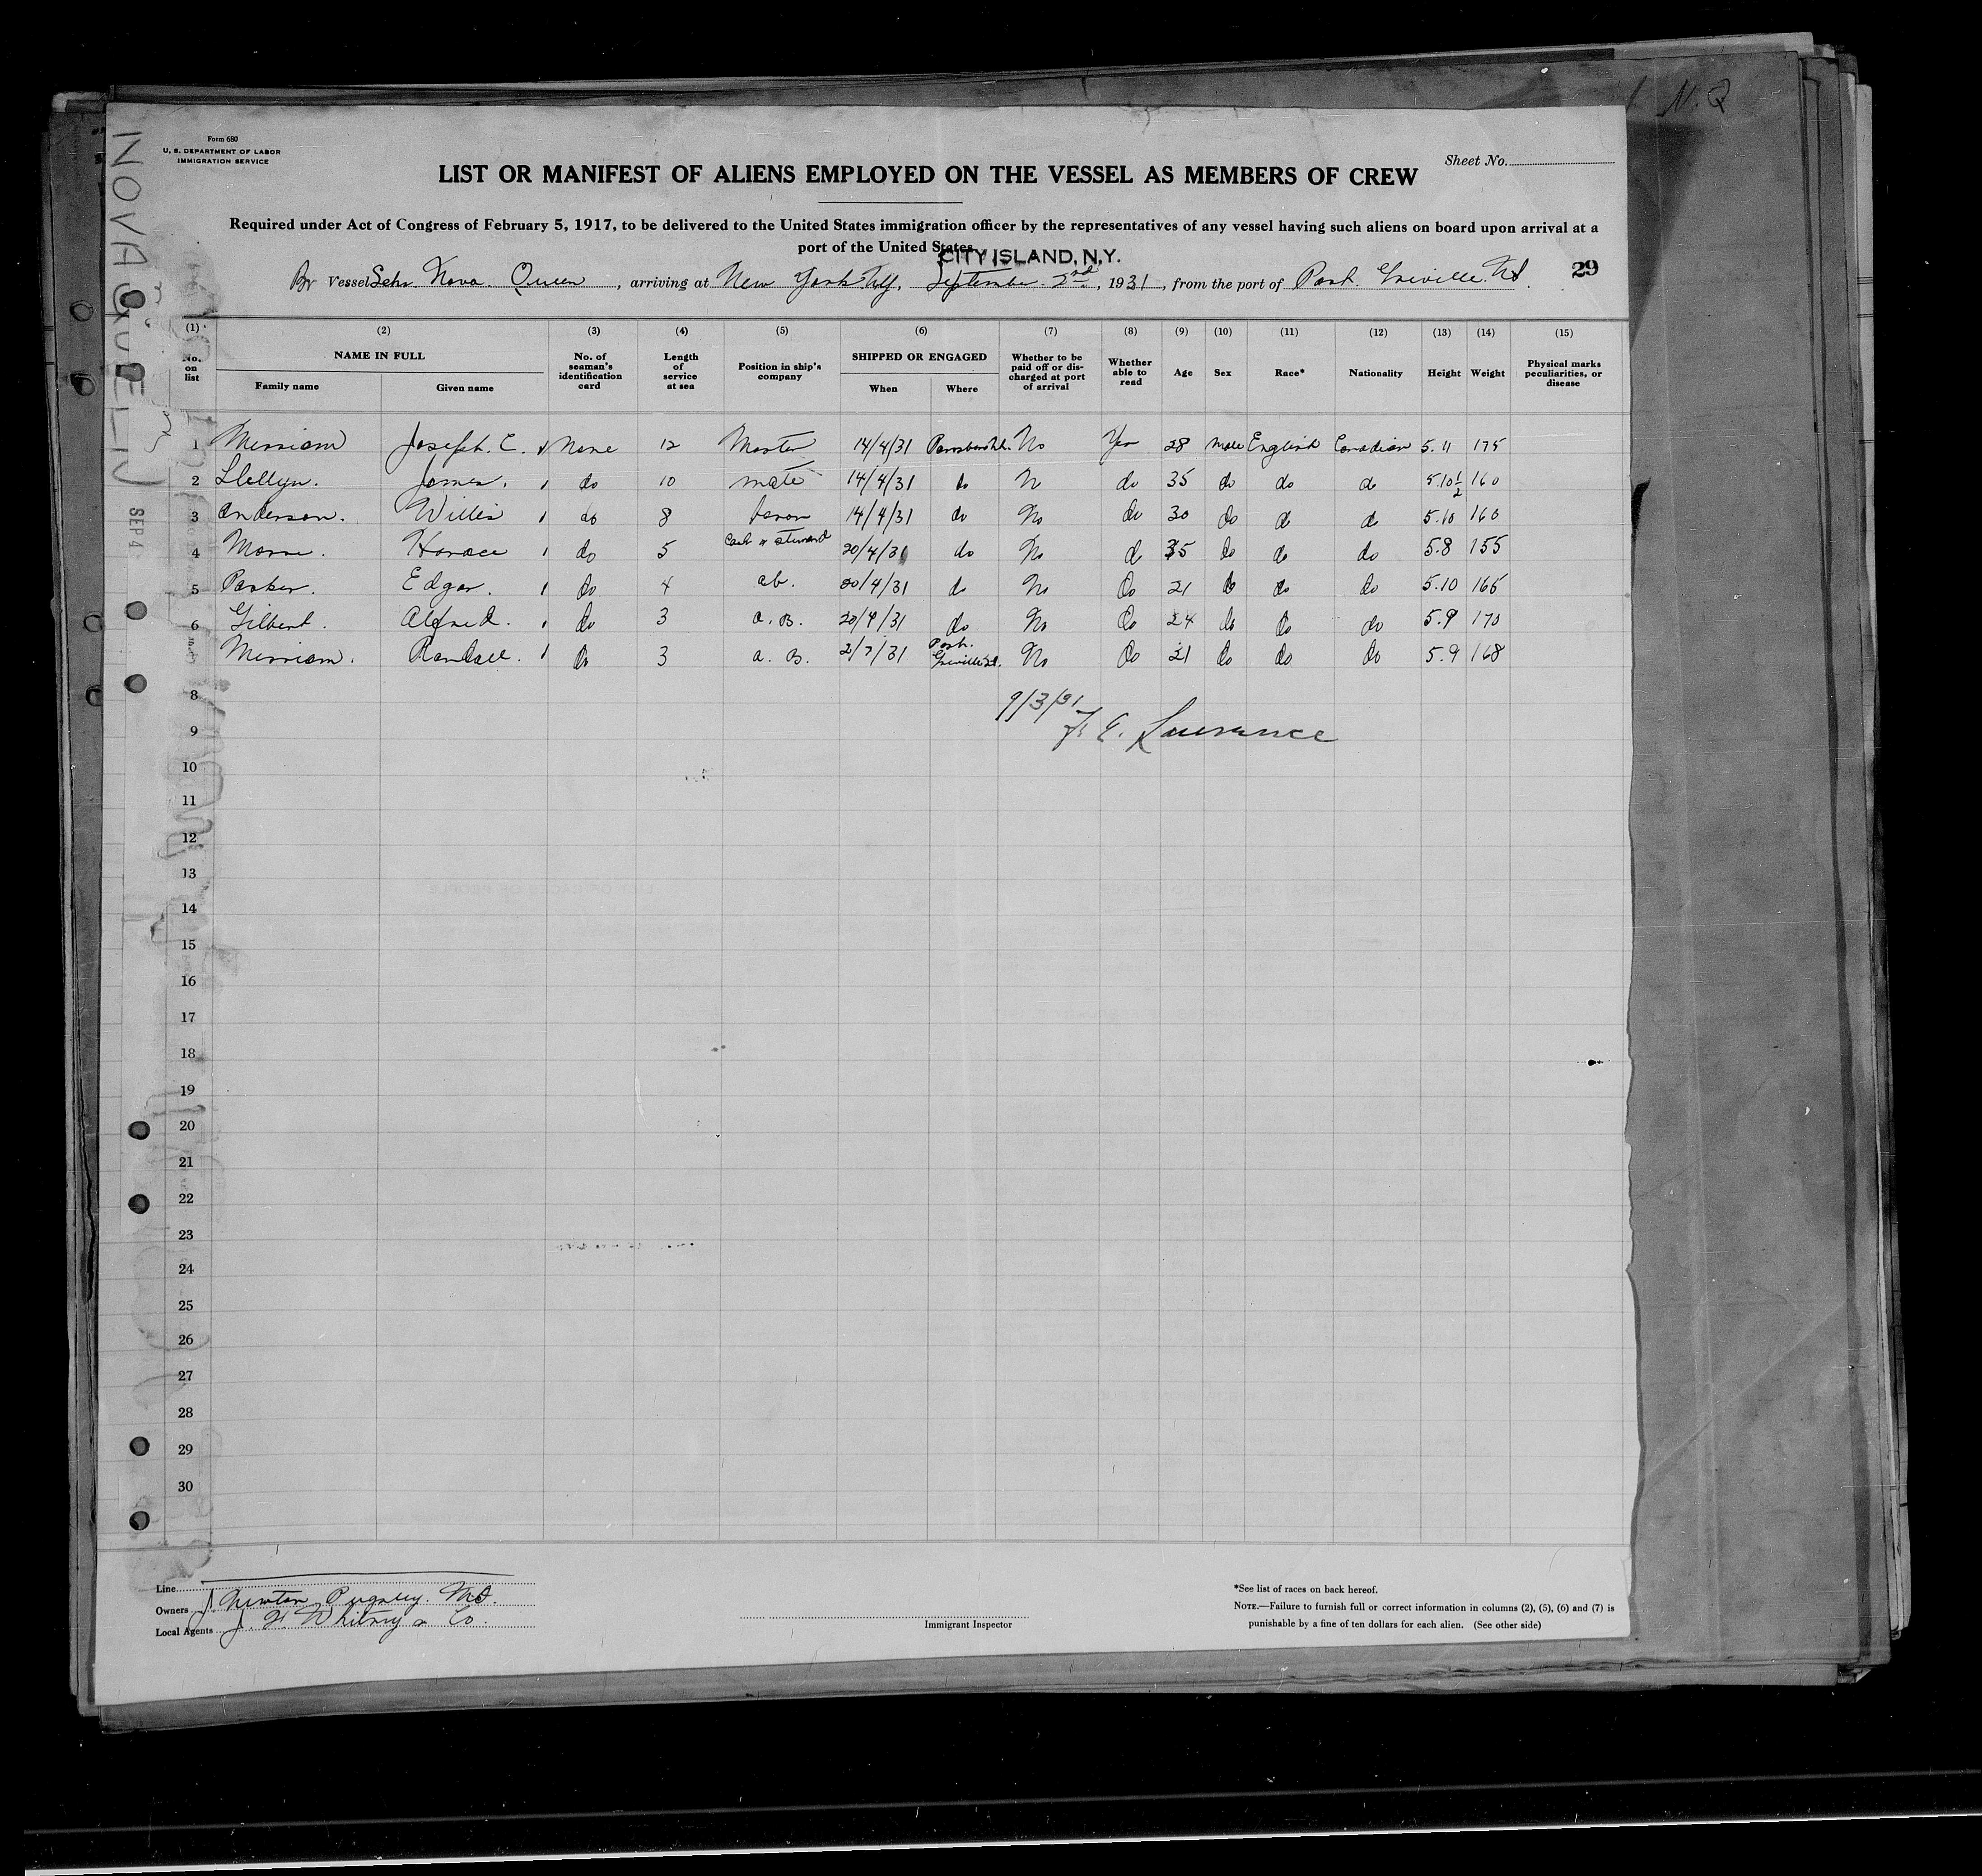 N.Q
NOVA QUEEN
SEP 4
Form 680
U. S. DEPARTMENT OF LABOR
IMMIGRATION SERVICE
Sheet No.
LIST OR MANIFEST OF ALIENS EMPLOYED ON THE VESSEL AS MEMBERS OF CREW
Required under Act of Congress of February 5, 1917, to be delivered to the United States immigration officer by the representatives of any vessel having such aliens on board upon arrival at a
port of the United States
CITY ISLAND, N.Y.
Br Vessel Schr Nova Queen, arriving at New York N.Y., September 2nd, 1931, from the port of Port Greville N.S. 29
(1) (2) (3) (4) (5) (6) (7) (8) (9) (10) (11) (12) (13) (14) (15)
No. on list NAME IN FULL Family name Given name No. of seaman's identification card Length of service at sea Position in ship's company SHIPPED OR ENGAGED When Where Whether to be paid off or discharged at port of arrival Whether able to read Age Sex Race* Nationality Height Weight Physical marks peculiarities, or disease
1 Merriam Joseph. E. None 12 Master 14/4/31 No Yes 28 Male English Canadian 5.11 175
2 Llellyn. James. do 10 mate 14/4/31 do No do 35 do do do 5.10½ 160
3 Anderson. Willis do 8 14/4/31 do No do 30 do do do 5.10 160
4 Horace do 5 Cook & Steward 20/4/31 do No do 35 do do do 5.8 155
5 Parker. Edgar. do 4 ab. 20/4/31 do No do 21 do do do 5.10 165
6 Gilbert. Alfred. do 3 a. B. 20/4/31 do No do 24 do do do 5.9 170
7 Merriam. Randall. do 3 a. B. 2/7/31 Port Greville N.S. No do 21 do do do 5.9 168
8
9/3/31
9
F. E. Lawrance
10
11
12
13
14
15
16
17
18
19
20
21
22
23
24
25
26
27
28
29
30
Line
Owners J. Newton Pugsley. N.S.
Local Agents J. F. Whitney & Co.
Immigrant Inspector
*See list of races on back hereof.
NOTE.—Failure to furnish full or correct information in columns (2), (5), (6) and (7) is
punishable by a fine of ten dollars for each alien. (See other side)